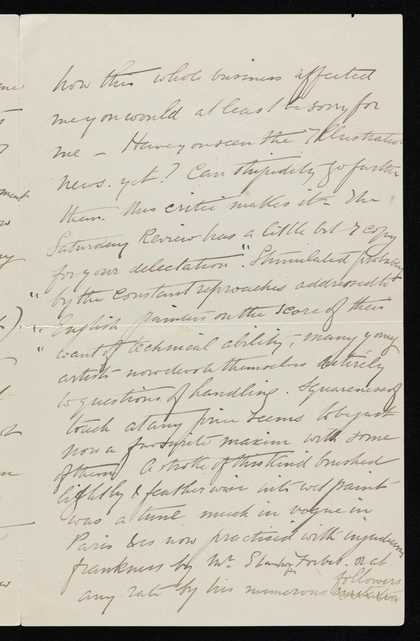 how this whole business affected
me you would at least be sorry for
me – Have you seen the Illustrated
news. yet? Can stupidity go further
than this critic makes it. The
Saturday Review has a little bit I copy
for your delectation. "Stimulated probably
" by the constant reproaches addressed to
" English painters on the score of their
" want of technical ability, many young
artists now devote themselves entirely
to questions of handling. Squareness of
touch at any price seems to be just
now a favourite maxim with some
of them. A stroke of this kind brushed
lightly & featherwise into wet paint
was a time much in vogue in
Paris & is now practised with ingenuous
frankness by Mr. Stanhope Forbes. or at
any rate by his numerous followers